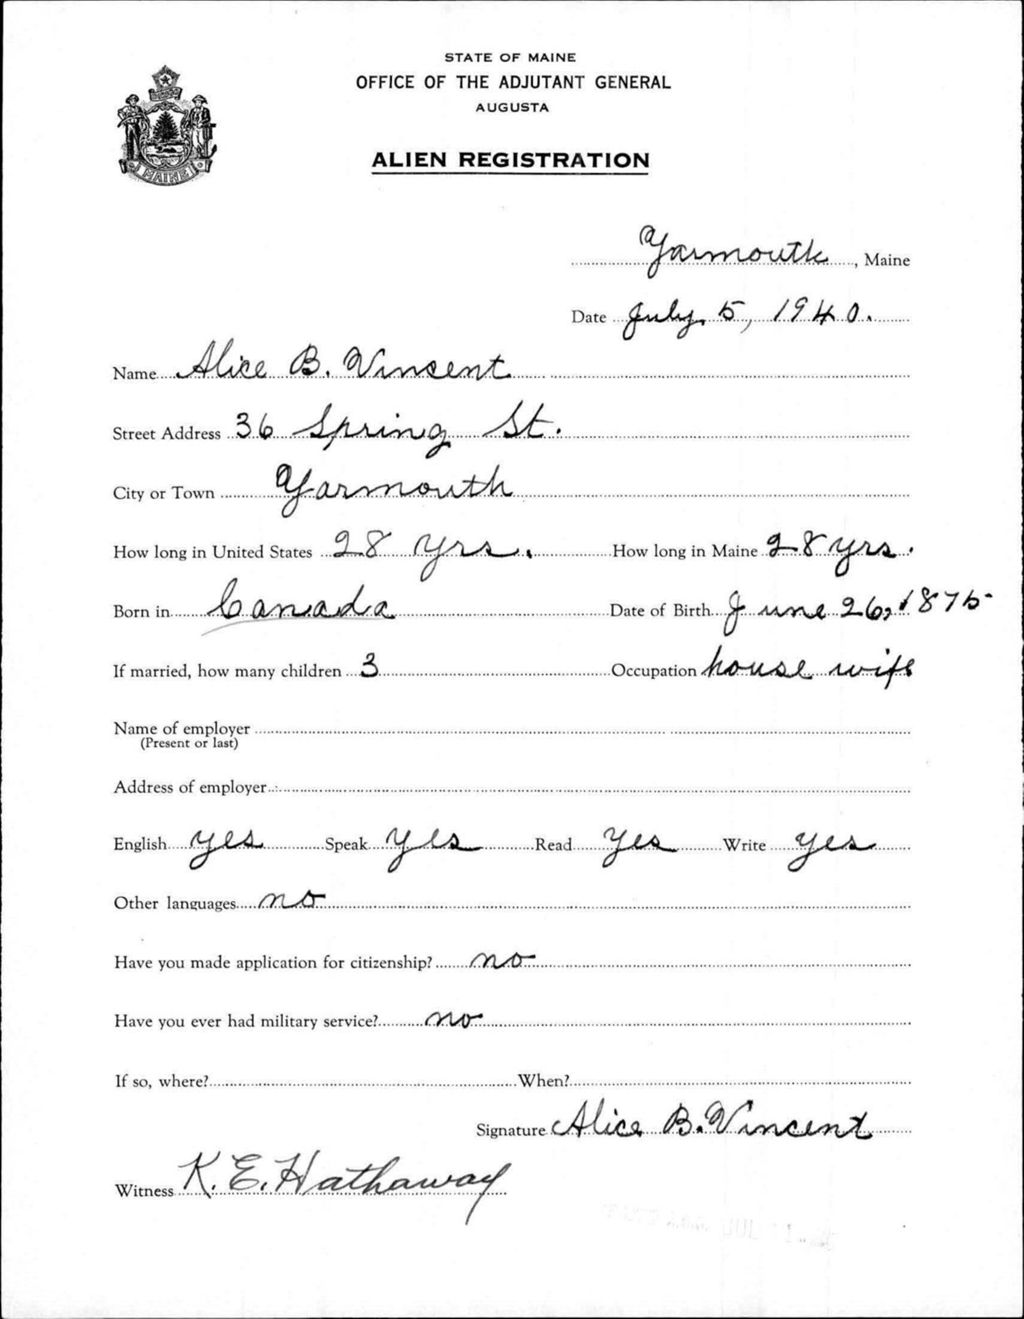 STATE OF MAINE
OFFICE OF THE ADJUTANT GENERAL
AUGUSTA
ALIEN REGISTRATION
MAINE
Yarmouth, Maine
Date July 5, 1940.
Name Alice B. Vincent
Street Address 36 Spring St.
City or Town Yarmouth
How long in United States 28 yrs. How long in Maine 28 yrs.
Born in Canada Date of Birth June 26, 1875
If married, how many children 3 Occupation house wife
Name of employer
(Present or last)
Address of employer
English yes Speak yes Read yes Write yes
Other languages no
Have you made application for citizenship? no
Have you ever had military service? no
If so, where? When?
Signature Alice B. Vincent
Witness K. E. Hathaway
JUL